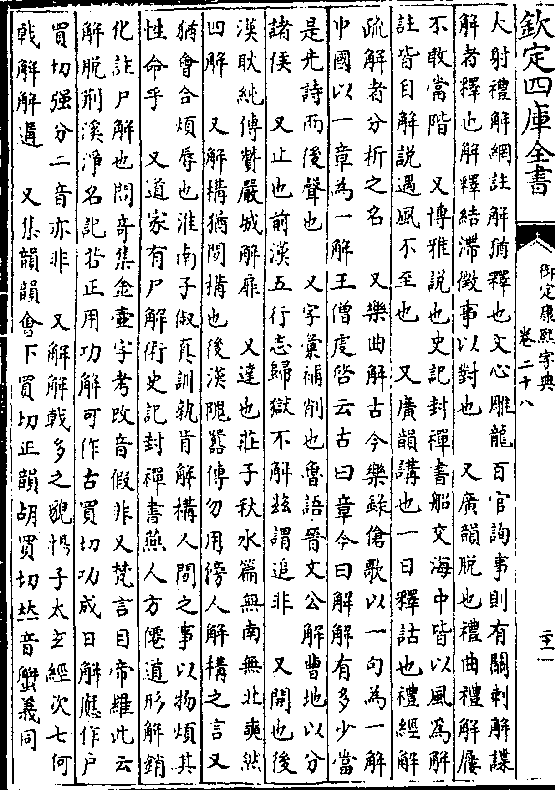 欽定四庫全書
御定康熙字典
卷二十八
二十一
大射禮解網註解猶釋也文心雕龍百官詢事則有關刺解諜
解者釋也解釋結滯徵事以對也　又廣韻脫也禮曲禮解屨
不敢當階　又博雅說也史記封禪書船交海中皆以風為解
註皆自解說遇風不至也　又廣韻講也一曰釋詁也禮經解
疏解者分析之名　又樂曲解古今樂錄傖歌以一句為一解
中國以一章為一解王僧虔啓云古曰章今曰解解有多少當
是先詩而後聲也　又字彙補削也魯語晉文公解曹地以分
諸侯　又止也前漢五行志歸獄不解玆謂追非　又開也後
漢耿純傳贊嚴城解扉　又達也莊子秋水篇無南無北奭然
四解　又解構猶間搆也後漢隗囂傳勿用傍人解構之言又
猶會合煩辱也淮南子俶真訓孰肯解構人間之事以物煩其
性命乎　又道家有尸解術史記封禪書燕人方僊道形解銷
化註尸解也問奇集金壷字考改音假非又梵言目帝羅此云
解脫荆溪淨名記咎正用功解可作古買切功成曰解應作戶
買切强分二音亦非　又解解戟多之貌揚子太玄經次七何
戟解解遘　又集韻韻會下買切正韻胡買切𠀤音蟹義同